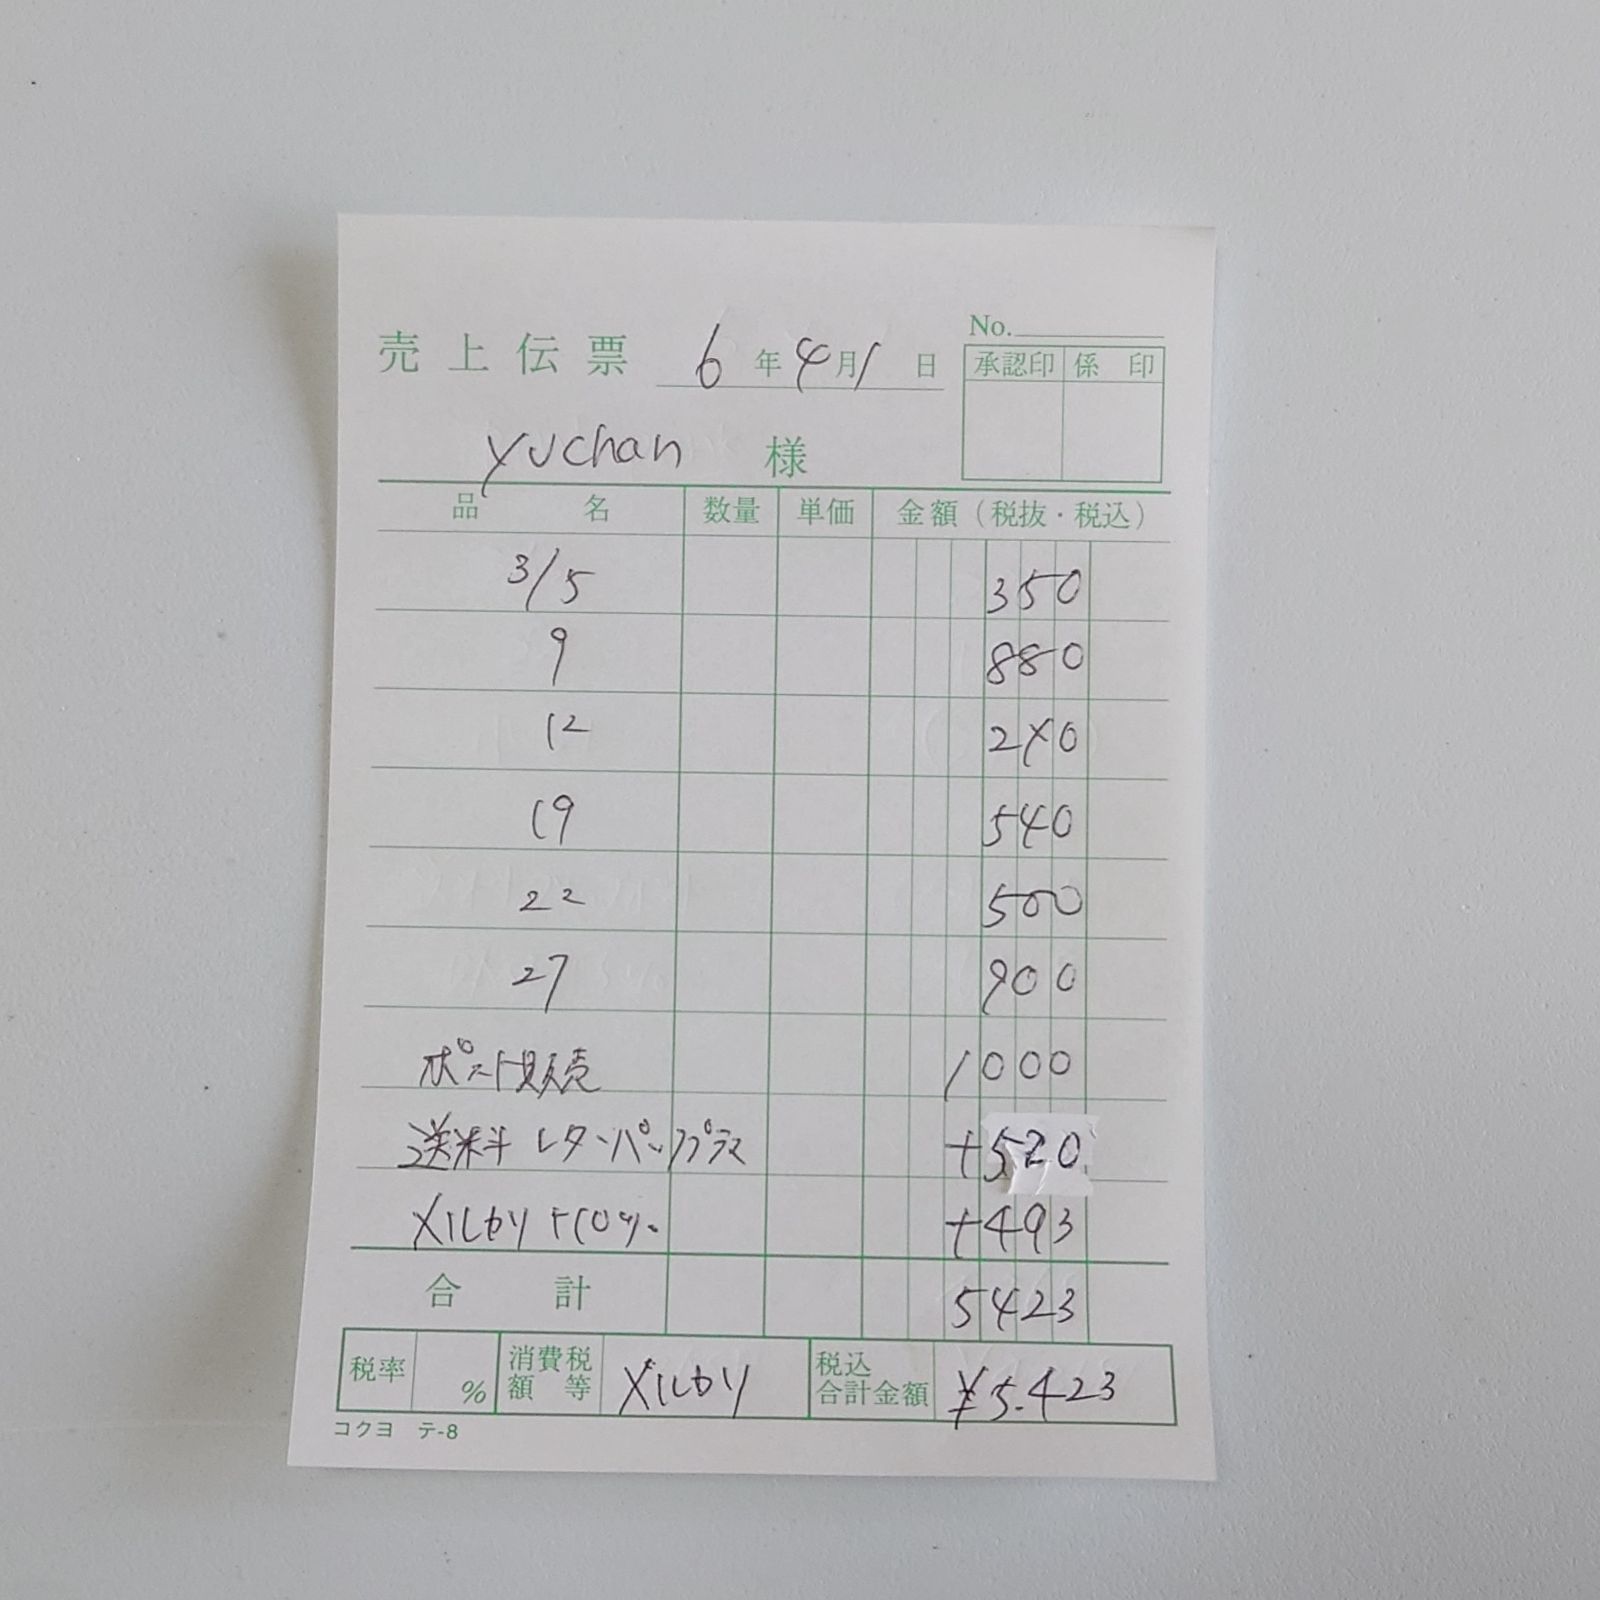 No.
売上伝票 6年4月1日
承認印 係印
yuchan 様
品名 数量 単価 金額(税抜・税込)
3/5 350
9 880
12 240
19 540
22 500
27 900
ポスト販売 1000
送料 レターパックプラス +520
メルカリ +10% +493
合計 5423
税率 % 消費税額等 メルカリ 税込合計金額 ¥5.423
コクヨ テ-8